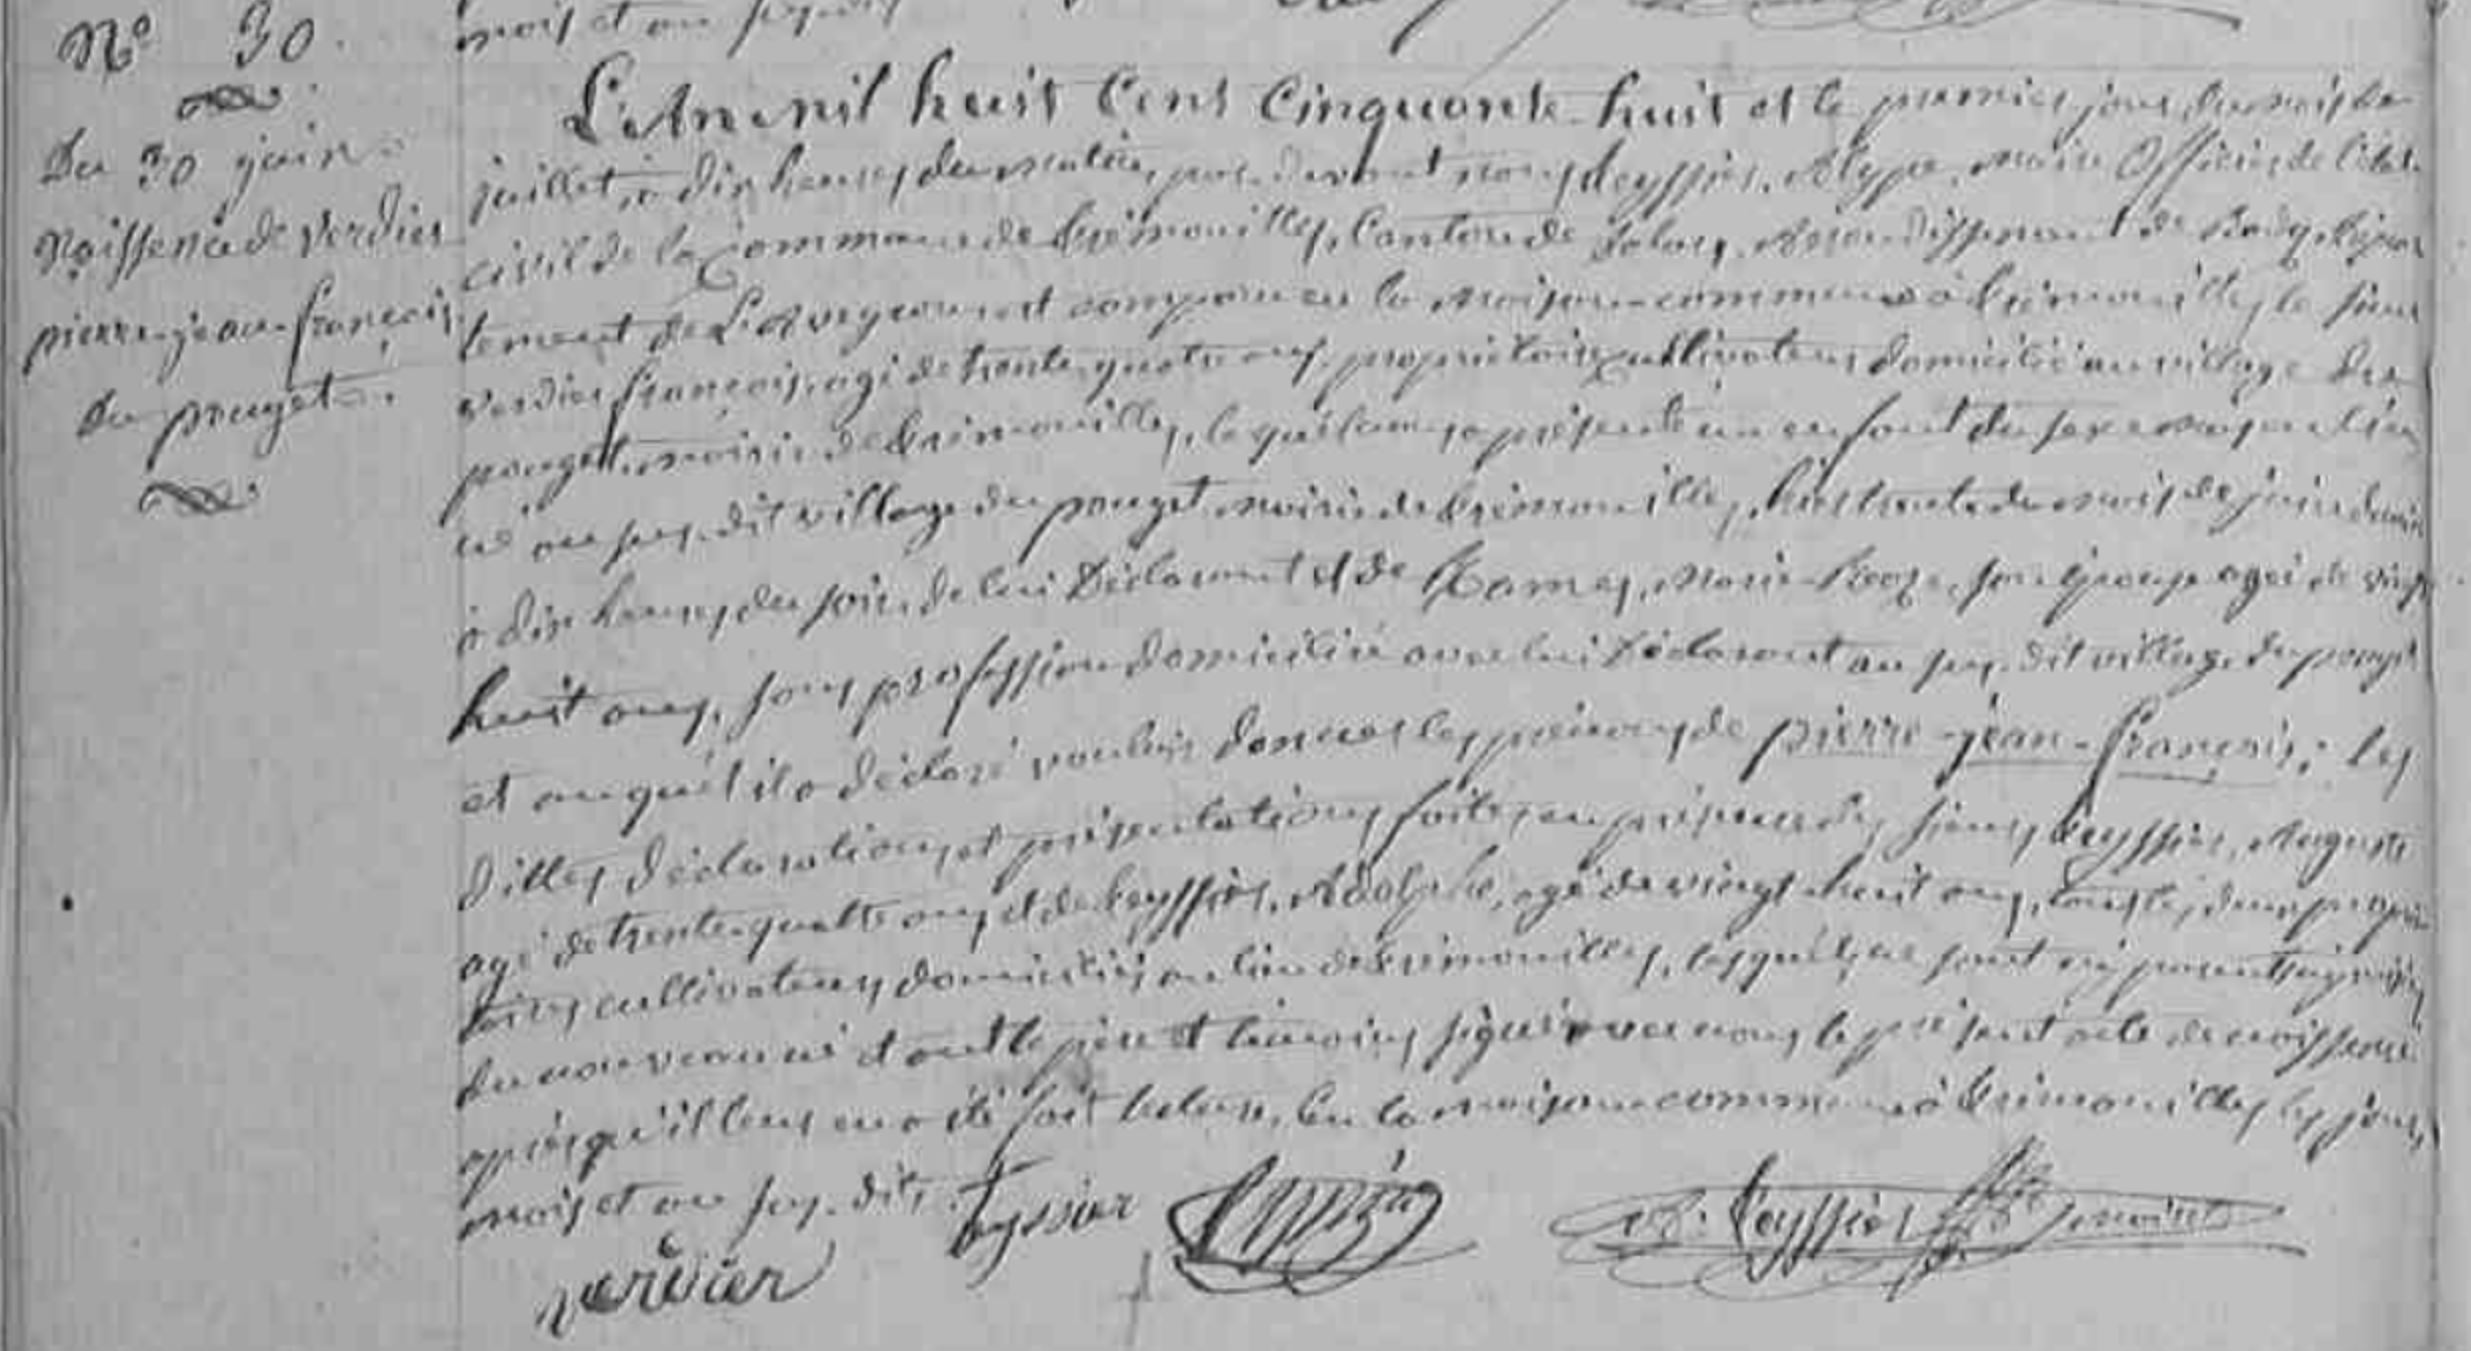 mois et an susdits
N° 30.
Du 30 juin
Naissance de Verdier
pierre-jean-françois
du pouget.
L'An mil huit Cent Cinquante-huit et le premier jour du mois de
juillet, à dix heures du matin, par devant nous teyssier, Alype, Maire Officier de l'état
civil de la Commune de trémouilles, Canton de Salars, Arrondissement de Rodez, dépar
tement de L'Aveyron est comparu en la Maison commune à trémouilles le sieur
Verdier françois, agé de trente-quatre ans, propriétaire cultivateur domicilié au village du
pouget, mairie de trémouilles, lequel nous a présenté un enfant du sexe masculin
né au sus-dit village du pouget mairie de trémouilles, hier trente du mois de juin dernier
à dix heures du soir, de lui Déclarant et de Marie-Roze, son épouse agée de vingt
huit ans, sans profession domiciliée avec lui Déclarant au sus-dit village du pouget
et auquel il a déclaré vouloir donner les prénoms de pierre-jean-françois; les
dittes déclarations et présentations faites en présence des sieurs teyssier, Auguste
agé de trente-quatre ans et de teyssier, Adolphe, agé de vingt-huit ans, tous les deux proprié
taires cultivateurs domiciliés au lieu de trémouilles, lesquels ne sont ni parents ni
du nouveau né et ont le père et témoins signé avec nous le présent acte de naissance
après qu'il leur en a été fait lecture, En la maison commune à trémouilles les jour,
mois et an sus-dits. Teyssier
A. Teyssier
verdier